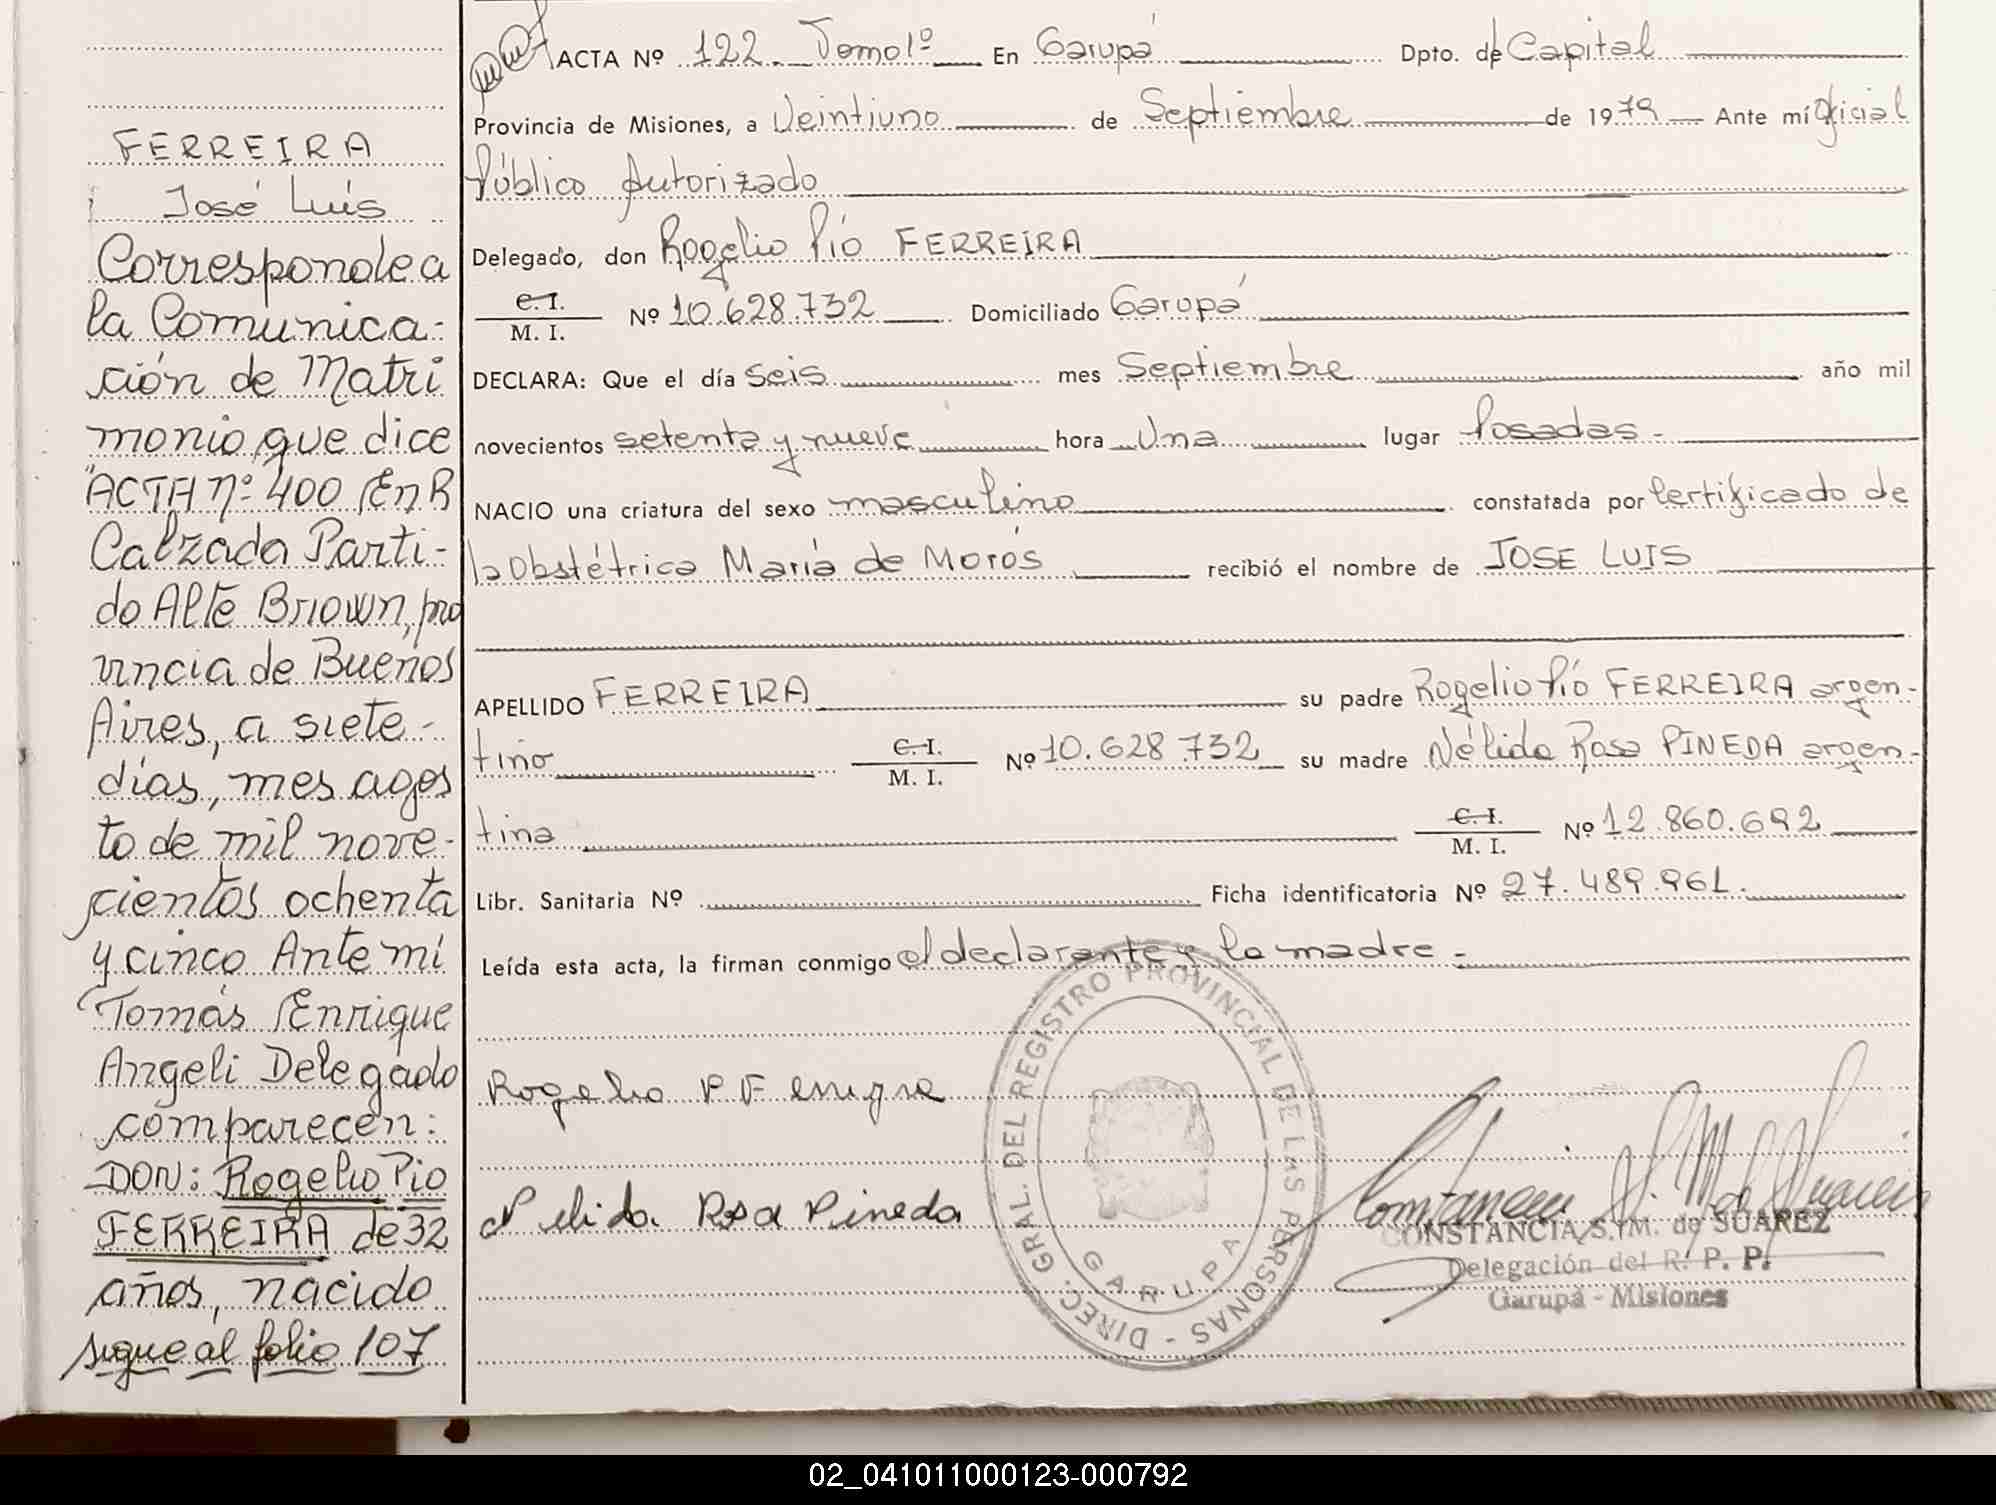 FERREIRA
José Luis
Corresponde a
la Comunica-
ción de Matri
monio que dice
"ACTA Nº 400 En R
Calzada Parti-
do Alte Brown, pro
vincia de Buenos
Aires, a siete-
días, mes agos
to de mil nove-
cientos ochenta
y cinco Ante mí
Tomás Enrique
Angeli Delegado
comparecen:
DON: Rogelio Pio
FERREIRA de 32
años, nacido
sigue al folio 107
ACTA Nº 122. Tomo 1º En Garupá Dpto. de Capital
Provincia de Misiones, a Veintiuno de Septiembre de 1979 Ante mí Oficial
Público Autorizado
Delegado, don Rogelio Pío FERREIRA
C. I.
M. I. Nº 10.628.732 Domiciliado Garupá
DECLARA: Que el día seis mes Septiembre año mil
novecientos setenta y nueve hora Una lugar Posadas-
NACIO una criatura del sexo masculino constatada por Certificado de
la Obstétrica María de Morós recibió el nombre de JOSE LUIS
APELLIDO FERREIRA su padre Rogelio Pío FERREIRA argen-
tino C. I. M. I. Nº 10.628.732 su madre Nélida Rosa PINEDA argen-
tina C. I. M. I. Nº 12.860.692
Libr. Sanitaria Nº Ficha identificatoria Nº 27.489.961.
Leída esta acta, la firman conmigo el declarante y la madre-
DIREC. GRAL. DEL REGISTRO PROVINCIAL DE LAS PERSONAS -
GARUPA
Rogelio P F
Nelida Rosa Pineda
CONSTANCIA S. M. de SUAREZ
Delegación del R. P. P.
Garupá - Misiones
02_041011000123-000792